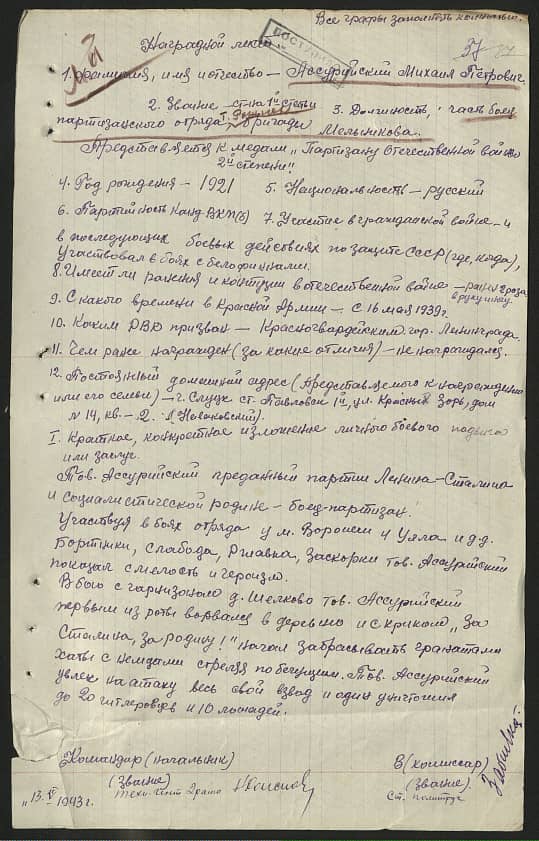 Все графы заполнять полностью.
Наградной лист
37
1. Фамилия, имя и отчество – Ассурийский Михаил Петрович.
2. Звание – 3. Должность, часть боец
партизанского отряда, бригады
Мельникова.
Представляется к медали „Партизану Отечественной войны
2й степени".
4. Год рождения – 1921 5. Национальность – русский
6. Партийность Канд. ВКП(б) 7. Участие в гражданской войне – и
в последующих боевых действиях по защите СССР (где, когда),
Участвовал в боях с белофиннами.
8. Имеет ли ранения и контузии в отечественной войне – ранен
9. С какого времени в Красной Армии – с 16 мая 1939г.
10. Каким РВК призван – Красногвардейским гор. Ленинграда.
11. Чем ранее награжден (за какие отличия) – не награждался.
12. Постоянный домашний адрес (представляемого к награждению
или его семьи) – г. Слуцк ст. Павловск 1й, ул. Красных Зорь, дом
№ 14, кв. – 2.
I. Краткое, конкретное изложение личного боевого подвига
или заслуг.
Тов. Ассурийский преданный партии Ленина–Сталина
и социалистической родине – боец-партизан.
Участвуя в боях отряда у м. Воронеч и Ушла и д.д.
Бортники, Слобода, Ржавка, Заскорки тов. Ассурийский
показал смелость и героизм.
В бою с гарнизоном д. Шелково тов. Ассурийский
первым из роты ворвался в деревню и с криком „За
Сталина, за родину!" начал забрасывать гранатами
хаты с немцами стреляя по бегущим. Тов. Ассурийский
увлек на атаку весь свой взвод и один уничтожил
до 20 гитлеровцев и 10 лошадей.
Командир (начальник) В (комиссар)
(звание) (звание)
Техн-инт 2 ранга Ст. политрук
„13. 1943г.